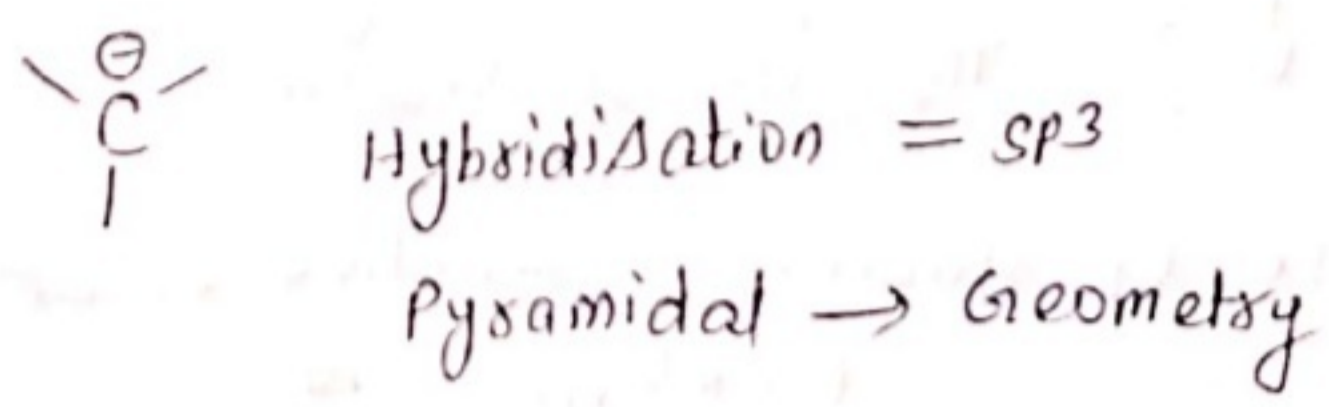 ⊖
C
Hybridisation = sp3
Pyramidal → Geometry